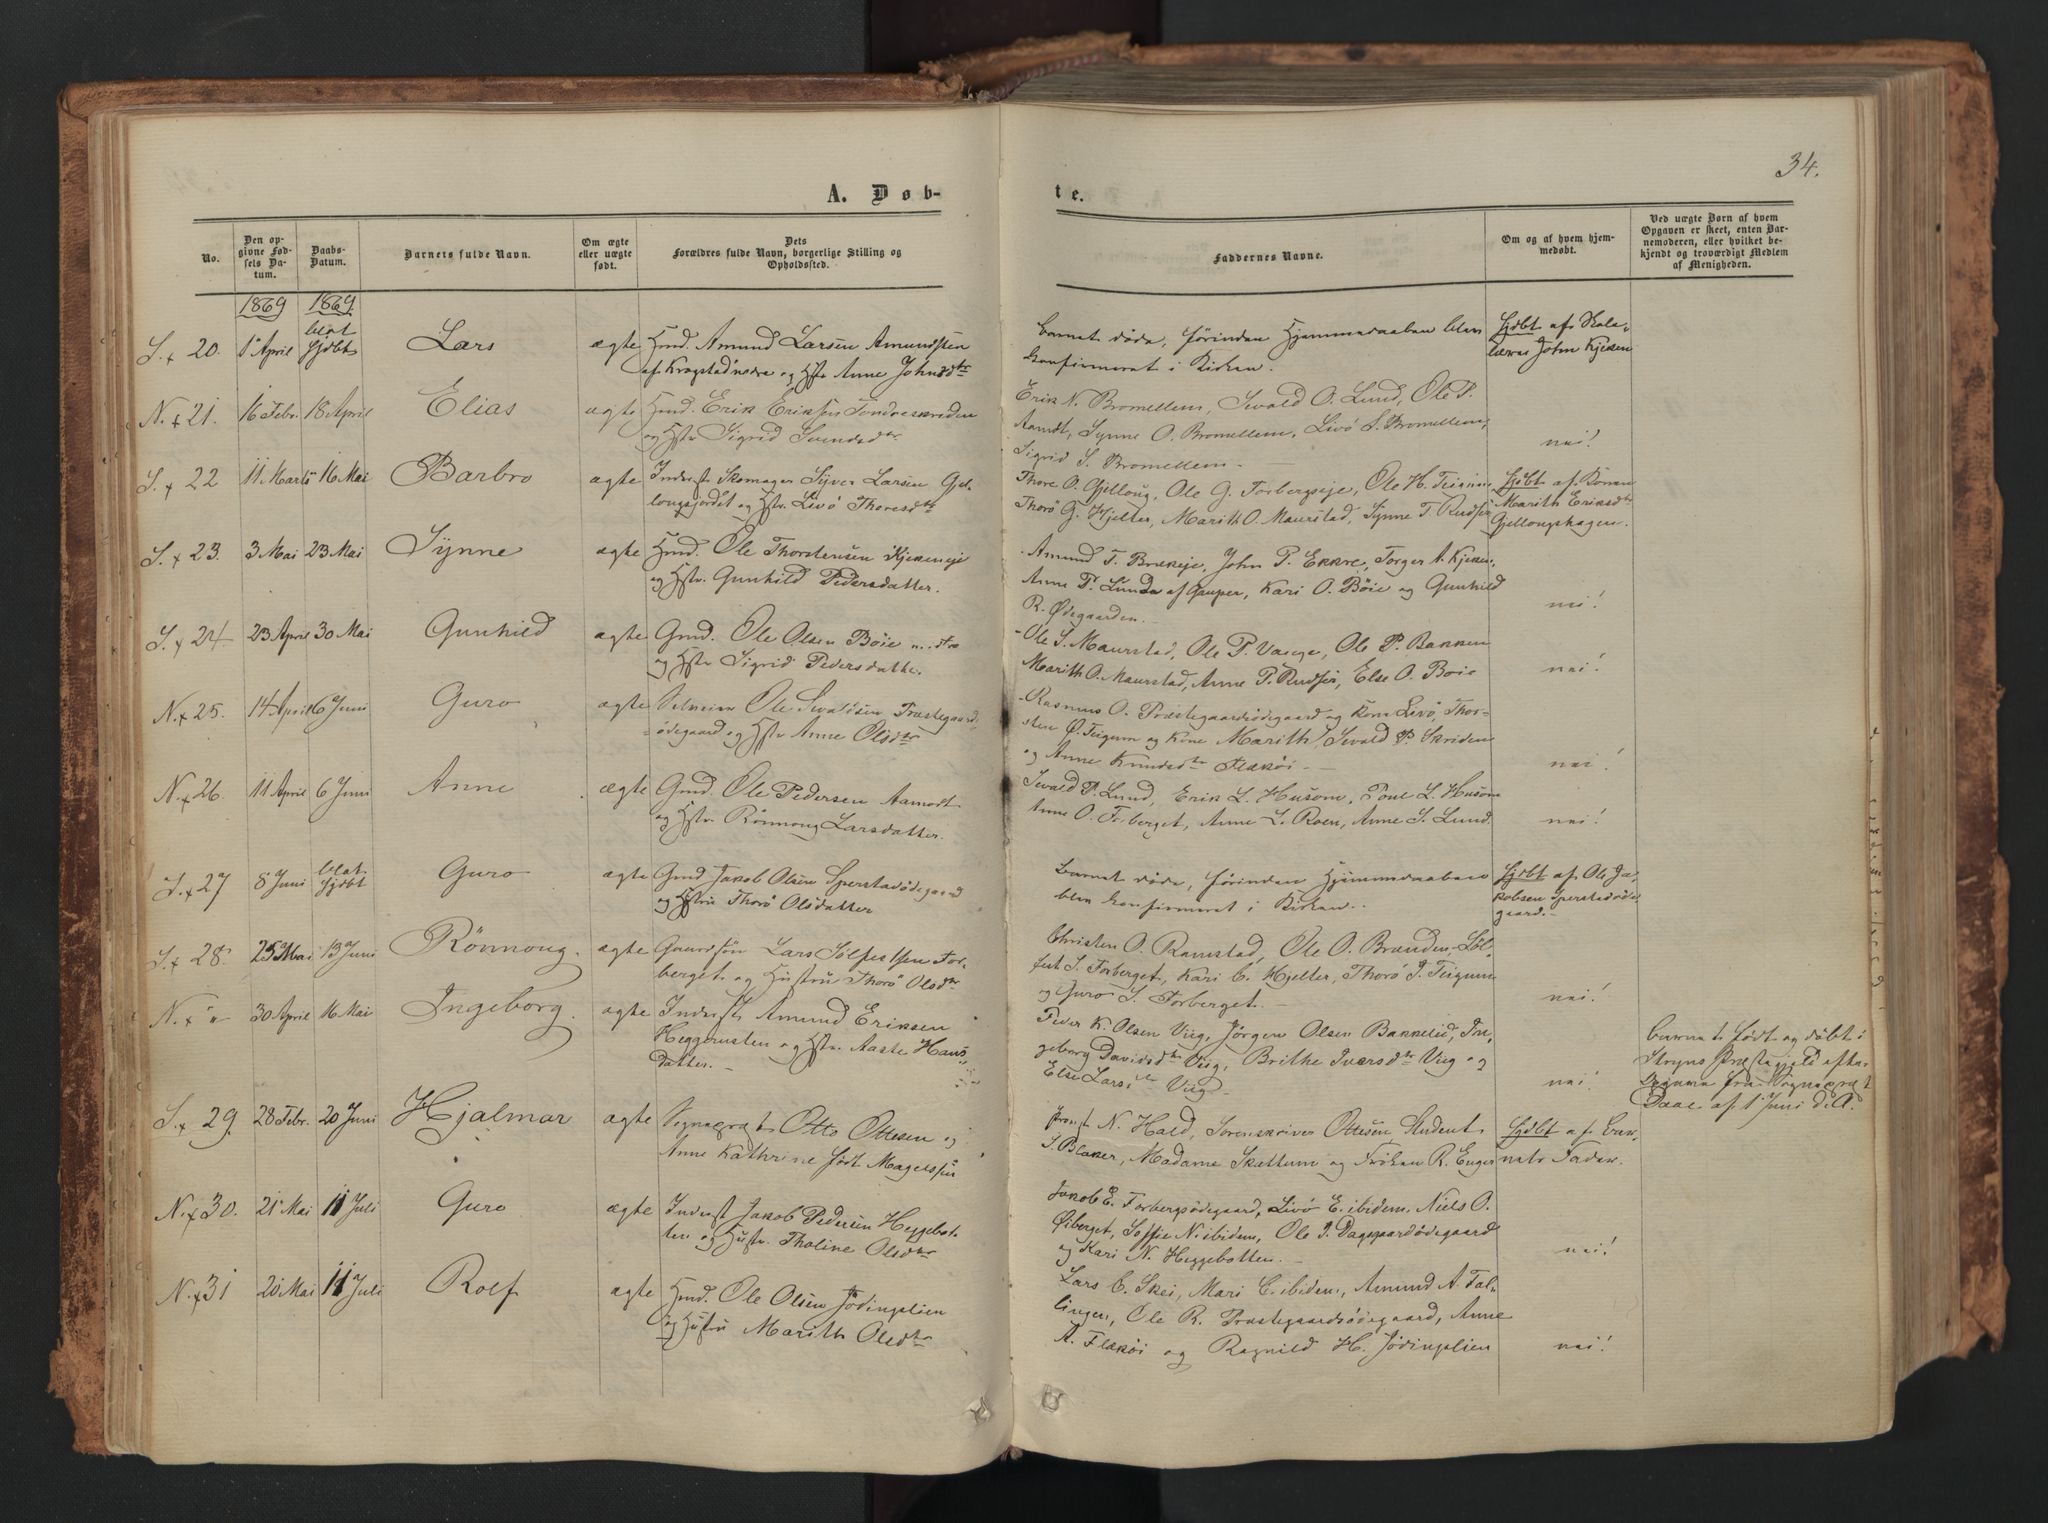 34.
A. Døb-
te.
No.
Den op-
givne Fød-
sels Da-
tum.
Daabs-
Datum.
Barnets fulde Navn.
Om ægte
eller uægte
født.
Dets
Forældres fulde Navn, borgerlige Stilling og
Opholdssted.
Faddernes Navne.
Om og af hvem hjem-
medøbt.
Ved uægte Børn af hvem
Opgaven er skeet, enten Bar-
nemoderen, eller hvilket be-
kjendt og troværdigt Medlem
af Menigheden.
1869 1869
S. 20. 1 April blot hjdbt Lars ægte Gmd. Amund Larsen Amundsten
af Kragstadnedre og Hstr Anne Johnsdtr
Barnet døde, førinden Hjemmedaaben blev
konfirmeret i Kirken.
Hjdbt af Skole-
lærer John Kjeken
N. 21. 16 Febr. 18 April Elias ægte Gmd. Erik Eriksen
og Hstr Sigrid Svendsdtr
Erik N. Bromellem, Sevald O. Lund, Ole P.
Aamdt, Synne O. Bromellem, Livö S. Bromellem,
Sigrid S. Bromellem.
nei!
S. 22 11 Marts 16 Mai Barbro ægte Inderst Skomager Syver Larsen Gjel-
longsjordet og Hstr. Livö Thoresdtr
Thore O. Gjelloug, Ole G. Forbergseje, Ole H. Teigum,
Thorö G. Hjelter, Marith O. Maurstad, Synne T. Rudsei
Hjdbt af Konen
Marith Eriksdtr
Gjellougshagen.
S. 23. 3 Mai 23 Mai Synne ægte Gmd. Ole Thorstensen Kjekeneje
og Hstr. Gunhild Pedersdatter.
Amund T. Brækeje, John P. Ekkre, Torger A. Kjeken,
Anne P. Lunde af Gauper, Kari O. Böie og Gunhild
R. Ødegaarden.
nei!
S. 24. 23 April 30 Mai Gunhild ægte Gmd. Ole Olsen Böie
og Hstr Sigrid Pedersdatter.
Ole S. Maurstad, Ole P. Vaage, Ole P. Bakken
Marith O. Maurstad, Anne P. Rudsei, Else O. Böie
nei!
N. 25. 14 April 6 Juni Guro ægte Selveier Ole Sevaldsen Præstegaards-
ødegaard og Hstr Anne Olsdtr
Rasmus O. Præstegaardsødegaard og Kone Livö, Thor-
sten Ø. Teigum og Kone Marith, Sevald P. Skriden
og Anne Knudsdtr Flækøi.
nei!
N. 26. 11 April 6 Juni Anne ægte Gmd. Ole Pedersen Aamodt
og Hstr. Rönnoug Larsdatter.
Sevald P. Lund, Erik L. Husom, Poul L. Husom
Anne O. Forberget, Anne L. Roen, Anne S. Lund.
nei!
S. 27 8 Juni blot hjdbt Guro ægte Gmd Jakob Olsen Sperstadødegaard
og Hstru Thorö Olsdatter
Barnet døde, førinden Hjemmedaaben
blev konfirmeret i Kirken.
Hjdbt af Ole Ja-
kobsen Sperstadøde-
gaard.
S. 28. 25 Mai 13 Juni Rönnoug. ægte Gaardsøn Lars Sölfestsen For-
berget og Hustru Thorö Olsdtr
Christen O. Ramstad, Ole O. Brænden, Söl-
fest S. Forberget, Kari C. Hjelter, Thorö J. Teigum
og Guro S. Forberget.
nei!
N. " 30 April 16 Mai Ingeborg. ægte Inderst Amund Eriksen
Heggerusten og Hstr. Aaste Hans-
datter.
Peder K. Olsen Viig, Jørgen Olsen Bakkelid, In-
geborg Davidsdtr Viig, Brithe Iversdtr Viig og
Else Larsdtr Viig.
nei!
Barnet født og døbt i
Stryns Præstegjeld efter
fra Sognepræst
Daae af 1 Juni d. A.
S. 29. 28 Febr. 20 Juni Hjalmar ægte Sognepræst Otto Ottesen og
Anne Kathrine født Magelssen
Provst N. Hald, Sorenskriver Ottesen, Student
S. Blaker, Madame Skattum og Frøken R. Enger
Hjdbt af Bar-
nets Fader.
N. 30. 21 Mai 11 Juli Guro ægte Inderst Jakob Pedersen Heggebot-
ten og Hustr. Tholine Olsdtr
Jakob E. Forbergsødegaard, Livö E. ibidem, Niels O.
Øiberget, Soffie N. ibidem, Ole J. Dagsgaardødegaard
og Kari N. Heggebotten.
nei!
N. 31 20 Mai 11 Juli Rolf ægte Gmd. Ole Olsen Jödingslien
og Hustru Marith Olsdtr
Lars C. Skei, Mari C. ibidem, Amund A. Tol-
lingen, Ole R. Præstegaardsødegaard, Anne
A. Flækøi og Ragnild H. Jödingslien
nei!